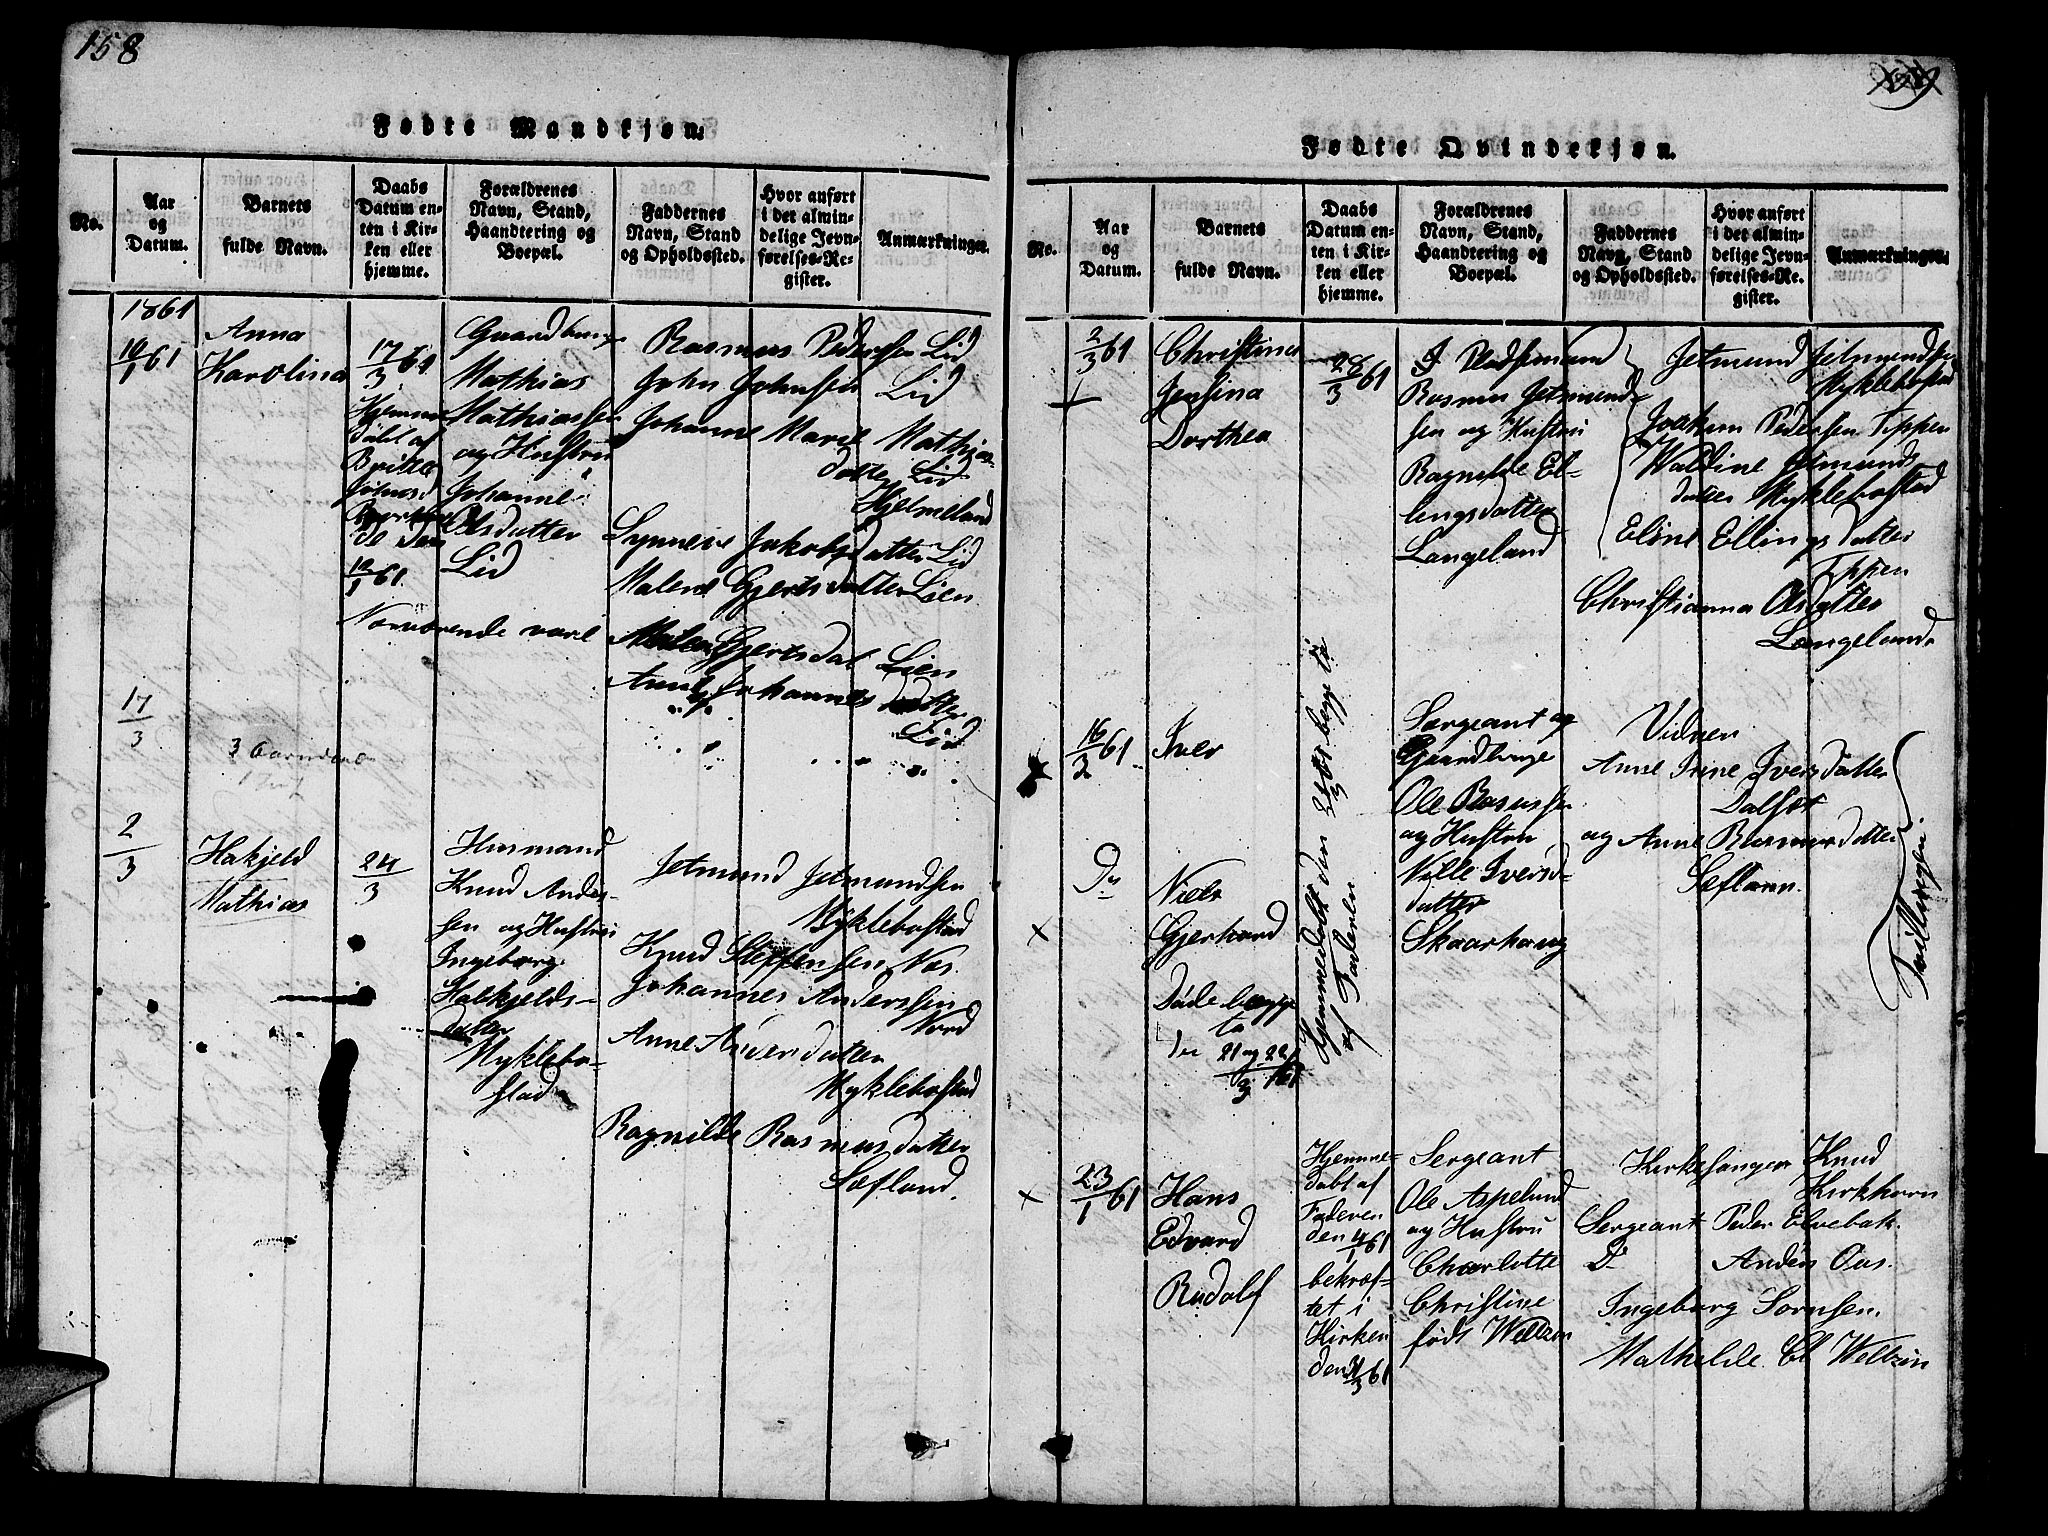 158
Fødte Mandkjøn.
No.
Aar
og
Datum.
Barnets
fulde Navn.
Daabs
Datum en-
ten i Kir-
ken eller
hjemme.
Forældrenes
Navn, Stand,
Haandtering og
Boepæl.
Faddernes
Navn, Stand
og Opholdssted.
Hvor anført
i det almin-
delige Jevn-
førelses-Re-
gister.
Anmærkninger.
1861
Anna
Karolina
17/3 61
Hjemme
døbt af
Gaardbruger
Mathias
Mathiassen
og Hustru
Johanne
Olsdatter
Lid
Rasmus Pedersen Lid
John Johnsen Lid
Johanne Marie Mathias-
datter Lid
Hjelmeland
Synneve Jakobsdatter Lid
Malene Gjertsdatter Lien
Nærværende vare
Malene Gjertsdat Lien
Anne Johannesdatter
Lid
17/3
2/3
Hakjeld
Mathias
24/3
Husmand
Knud Anders-
sen og Hustru
Ingeborg
Hakjelds-
datter
Myklebo-
stad
Jetmund Jetmundsen
Myklebostad
Knud Steffensen Næs
Johannes Anderssen
Nord
Anne Andersdatter
Myklebostad
Ragnilde Rasmusdatter
Sæfland.
159
Fødte Qvindekjøn.
No.
Aar
og
Datum.
Barnets
fulde Navn.
Daabs
Datum en-
ten i Kir-
ken eller
hjemme.
Forældrenes
Navn, Stand,
Haandtering og
Boepæl.
Faddernes
Navn, Stand
og Opholdssted.
Hvor anført
i det almin-
delige Jevn-
førelses-Re-
gister.
Anmærkninger.
2/3 61
Christine
Jensina
Dorthea
28/3 61
Pladsemand
Rasmus Jetmund-
sen og Hustru
Ragnilde El-
lingsdatter
Langeland
Jetmund Jetmundsen
Myklebostad
Joakim Pedersen Tippen
Waldine Jetmunds
datter Myklebostad
Eline Ellingsdatter
Tippen
Christianna Olsdatter
Langeland
16/3 61
Iver
Hjemmedøbt den begge to
af Faderen
Sergeant og
Gaardbruge
Ole Rasmussen
og Hustru
Nille Ivers-
datter
Skaarhaug
Vidner
Anne Trine Iversdatter
Dalsæt
og Anne Rasmusdatter
Sæfland.
Tvillinger.
Do
Niels
Gjerhard
Døde begge
to
den 21 og 22/3 61
23/1 61
Hans
Edvard
Rudolf
Hjemme-
døbt af
Faderen
den
bekræf-
tet i
Kirken
den 31/3 61
Sergeant
Ole Aspelund
og Hustru
Charlotte
Christine
født Weltzin
Kirkesanger Knud
Kirkhorn
Sergeant Peder Elvebak.
Do Anders Aas.
Ingeborg Sørnsen.
Mathilde Cl Weltzin